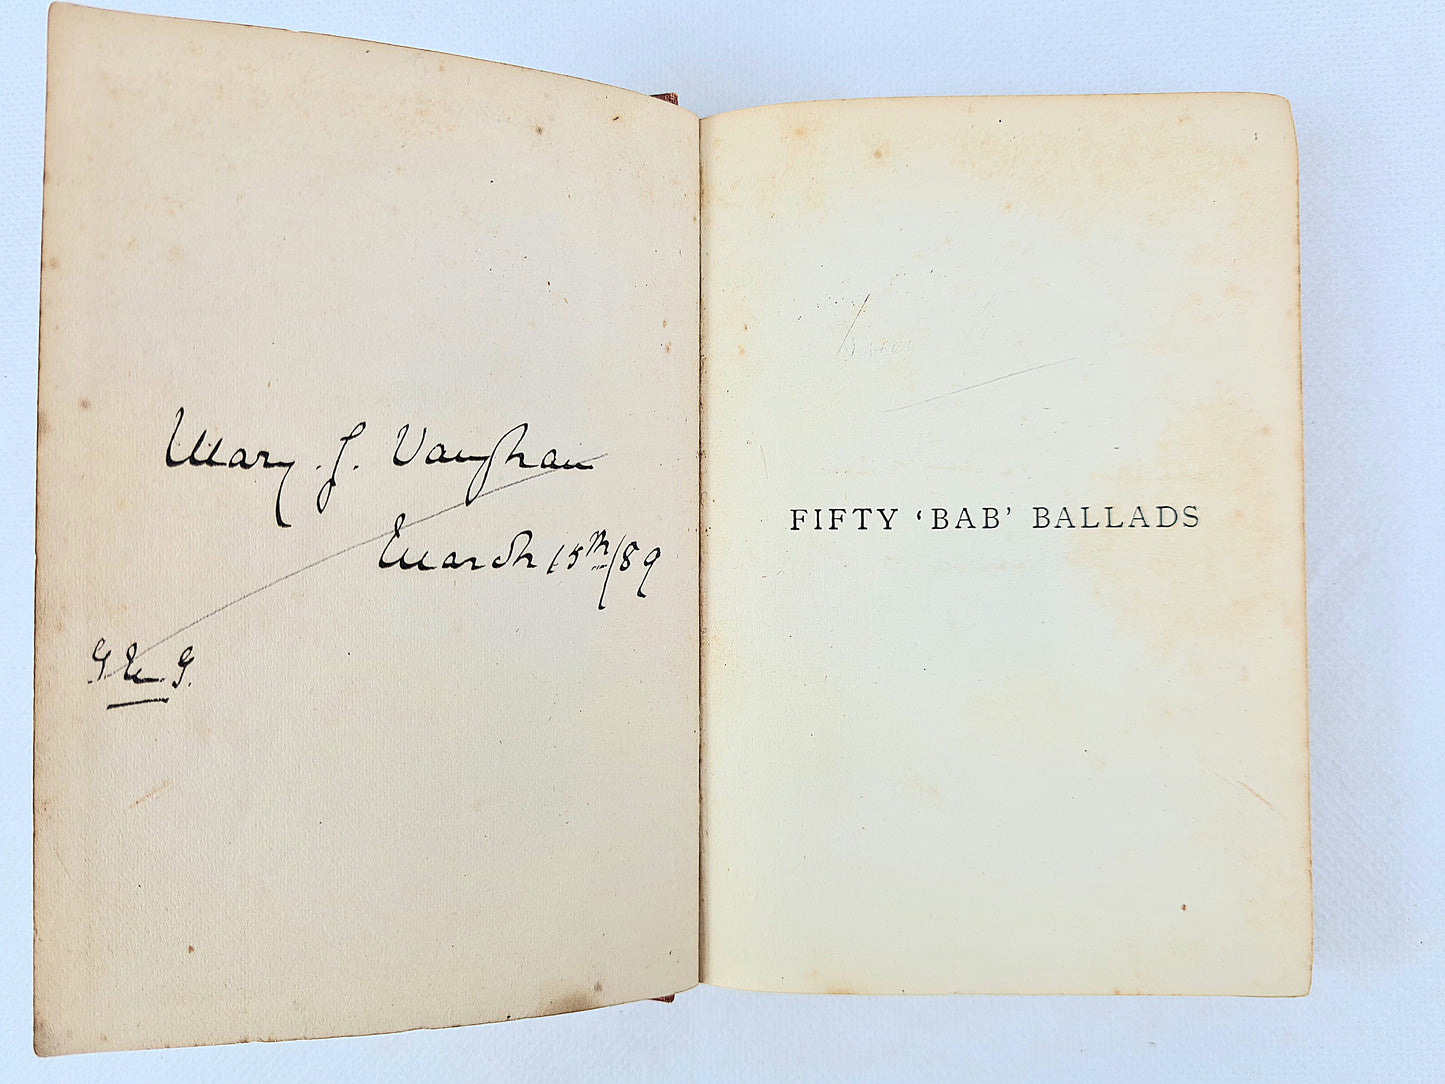 Mary J. Vaughan
March 15th/89
G. M. G.
FIFTY ‘BAB’ BALLADS